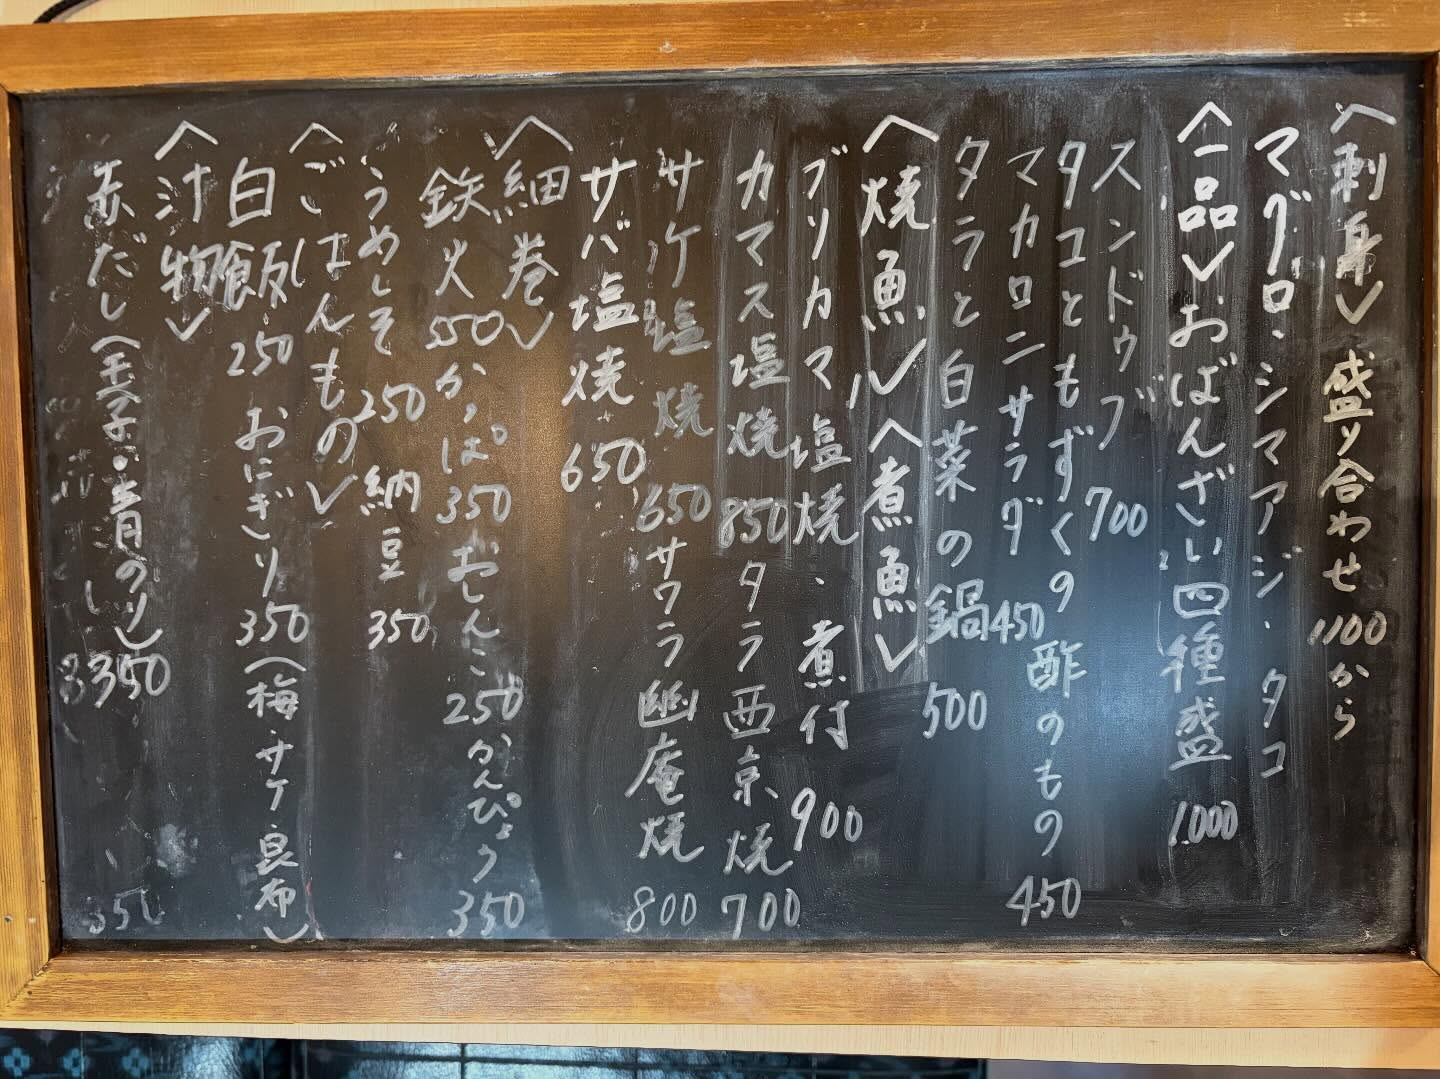 〈刺身〉盛り合わせ 1100から
マグロ・シマアジ・タコ
〈一品〉おばんざい四種盛 1,000
スンドゥブ 700
タコともずくの酢のもの 450
マカロニサラダ 450
タラと白菜の鍋 500
〈焼魚〉〈煮魚〉
ブリカマ塩焼・煮付 900
カマス塩焼 850 タラ西京焼 700
サケ塩焼 650 サワラ幽庵焼 800
サバ塩焼 650
〈細巻〉
鉄火 550 かっぱ 350 おしんこ 250 かんぴょう 350
うめしそ 250 納豆 350
〈ごはんもの〉
白飯 250 おにぎり 350 (梅・サケ・昆布)
〈汁物〉
赤だし(玉子・青のり) 350
350